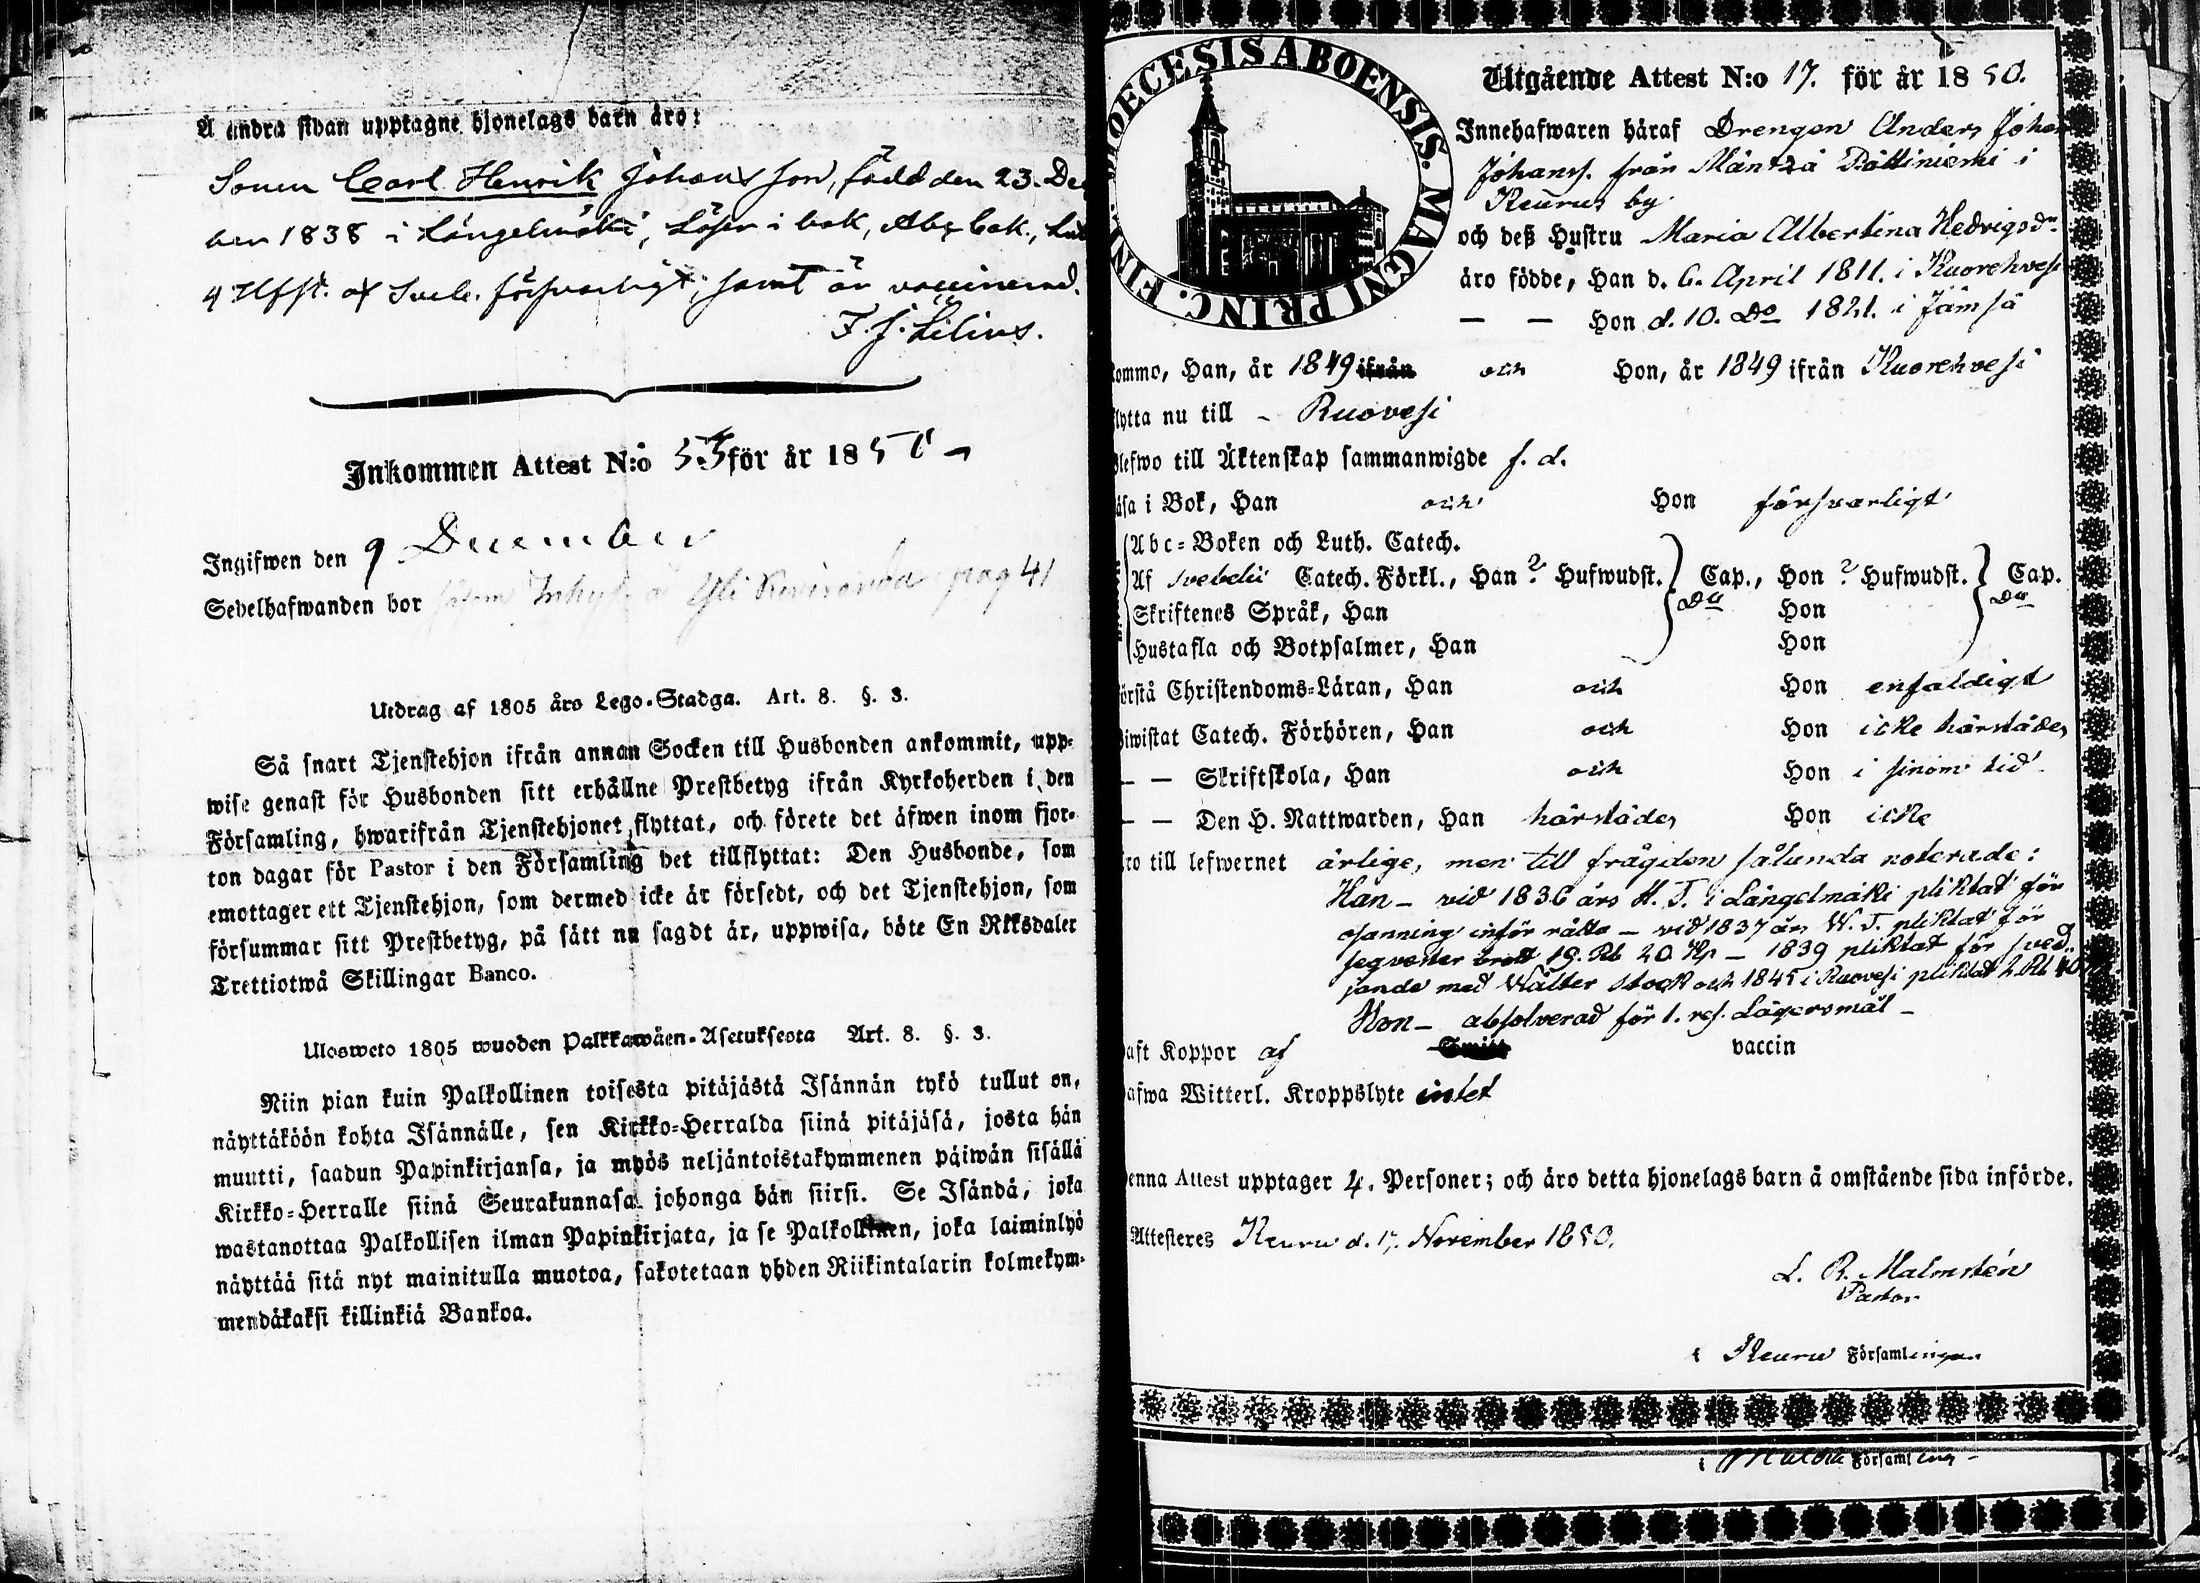 Å andra sidan upptagne hjonelags barn äro:
Sonen Carl Henrik Johansson, född den 23. De
ber 1838 i Längelmäki, Läser i bok, Abc bok., Lut
4 Hfst. af Sveb. försvarligt; samt är vaccinerad.
F. J. Lilius.
Inkommen Attest N:o 53 för år 185
Ingifwen den 9 December
Sedelhafwanden bor såsom Inhys. pag 41
Utdrag af 1805 års Lego-Stadga. Art. 8. §. 3.
Så snart Tjenstehjon ifrån annan Socken till Husbonden ankommit, upp-
wise genast för Husbonden sitt erhållne Prestbetyg ifrån Kyrkoherden i den
Församling, hwarifrån Tjenstehjonet flyttat, och förete det äfwen inom fjor-
ton dagar för Pastor i den Församling det tillflyttat: Den Husbonde, som
emottager ett Tjenstehjon, som dermed icke är försedt, och det Tjenstehjon, som
försummar sitt Prestbetyg, på sätt nu sagdt är, uppwisa, böte En Rksdaler
Trettiotwå Skillingar Banco.
Ulosweto 1805 wuoden Palkkawäen-Asetuksesta Art. 8. §. 3.
Niin pian kuin Palkollinen toisesta pitäjästä Isännän tykö tullut on,
näyttäköön kohta Isännälle, sen Kirkko-Herralda siinä pitäjäsä, josta hän
muutti, saadun Papinkirjansa, ja myös neljäntoistakymmenen päiwän sisällä
Kirkko-Herralle siinä Seurakunnasa johonga hän siirsi. Se Isändä, joka
wastanottaa Palkollisen ilman Papinkirjata, ja se Palkollinen, joka laiminlyö
näyttää sitä nyt mainitulla muotoa, sakotetaan yhden Riikintalarin kolmekym-
mendäkaksi killinkiä Bankoa.
DIOECESIS ABOENSIS. MAGNI PRINC. FINL.
Utgående Attest N:o 17. för år 1850.
Innehafwaren häraf Drengen Anders Johan
Johanss. från Mänttä Pättiniemi i
Keurus by
och deß Hustru Maria Albertina Hedvigsdr
äro födde, Han d. 6. April 1811. i Kuorehvesi
— — Hon d. 10. Do 1821. i Jämsä
kommo, Han, år 1849 ifrån och Hon, år 1849 ifrån Kuorehvesi
flytta nu till - Ruovesi
blefwo till Äktenskap sammanwigde f. d.
läsa i Bok, Han och Hon försvarligt
Abc-Boken och Luth. Catech.
Af Svebelii Catech. Förkl., Han ? Hufwudst. Cap., Hon ? Hufwudst. Cap.
Skriftenes Språk, Han Do Hon Do
Hustafla och Botpsalmer, Han Hon
förstå Christendoms-Läran, Han och Hon enfaldigt
biwistat Catech. Förhören, Han och Hon icke härstädes
— — Skriftskola, Han och Hon i sinom tid
— — Den H. Nattwarden, Han härstädes Hon icke
äro till lefwernet ärlige, men till frägden sålunda noterade:
Han - vid 1836 års H. T. i Längelmäki pliktat för
osanning inför rätta - vid 1837 års W. T. pliktat för
19. Rb 20. Kp - 1839 pliktat för
med Wälter stock och 1845 i Ruovesi pliktat 2 Rb 40
Hon - absolverad för 1. res. Lägersmål -
haft Koppor af vaccin
hafwa Witterl. Kroppslyte intet
Denna Attest upptager 4. Personer; och äro detta hjonelags barn å omstående sida införde.
Attesteres Keuru d. 17. November 1850.
L. R. Malmstén
Pastor
i Keuru Församlingen
i Församling